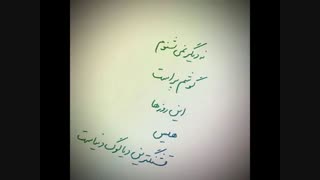 نه دیگر نمی شنوم
گوشم پر است
این روزها
هیس
قشنگترین دیالوگ دنیاست